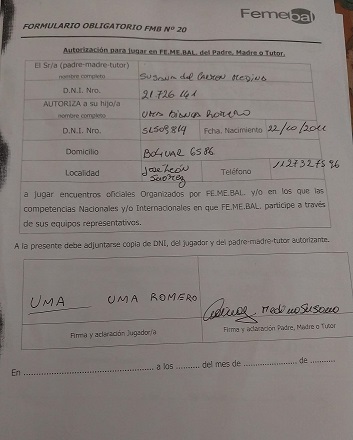 Femebal
FORMULARIO OBLIGATORIO FMB Nº 20
Autorización para jugar en FE.ME.BAL. del Padre, Madre o Tutor.
El Sr/a (padre-madre-tutor)
nombre completo Susana del Carmen Medina
D.N.I. Nro. 21 726 141
AUTORIZA a su hijo/a
nombre completo Uma Bianca Romero
D.N.I. Nro. 51509814 Fcha. Nacimiento 22/10/2011
Domicilio Bolivar 6586
Localidad Jose León Suarez Teléfono 1127327596
a jugar encuentros oficiales Organizados por FE.ME.BAL. y/o en los que las
competencias Nacionales y/o Internacionales en que FE.ME.BAL. participe a través
de sus equipos representativos.
A la presente debe adjuntarse copia de DNI, del jugador y del padre-madre-tutor autorizante.
UMA UMA ROMERO Medina Susana
Firma y aclaración Jugador/a Firma y aclaración Padre, Madre o Tutor
En ........................................ a los .......... del mes de ................ de ........